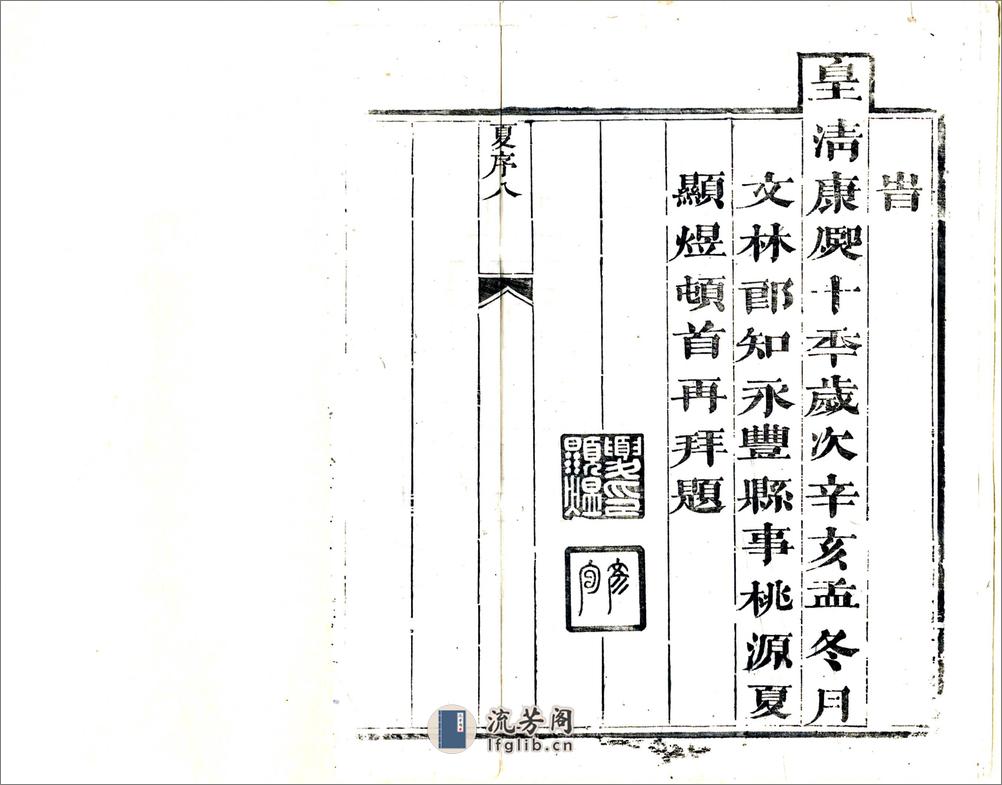 旹
皇清康熙十年歲次辛亥孟冬月
文林郎知永豐縣事桃源夏
顯煜頓首再拜題
夏印
顯煜
夏序八
流芳阁
lfglib.cn